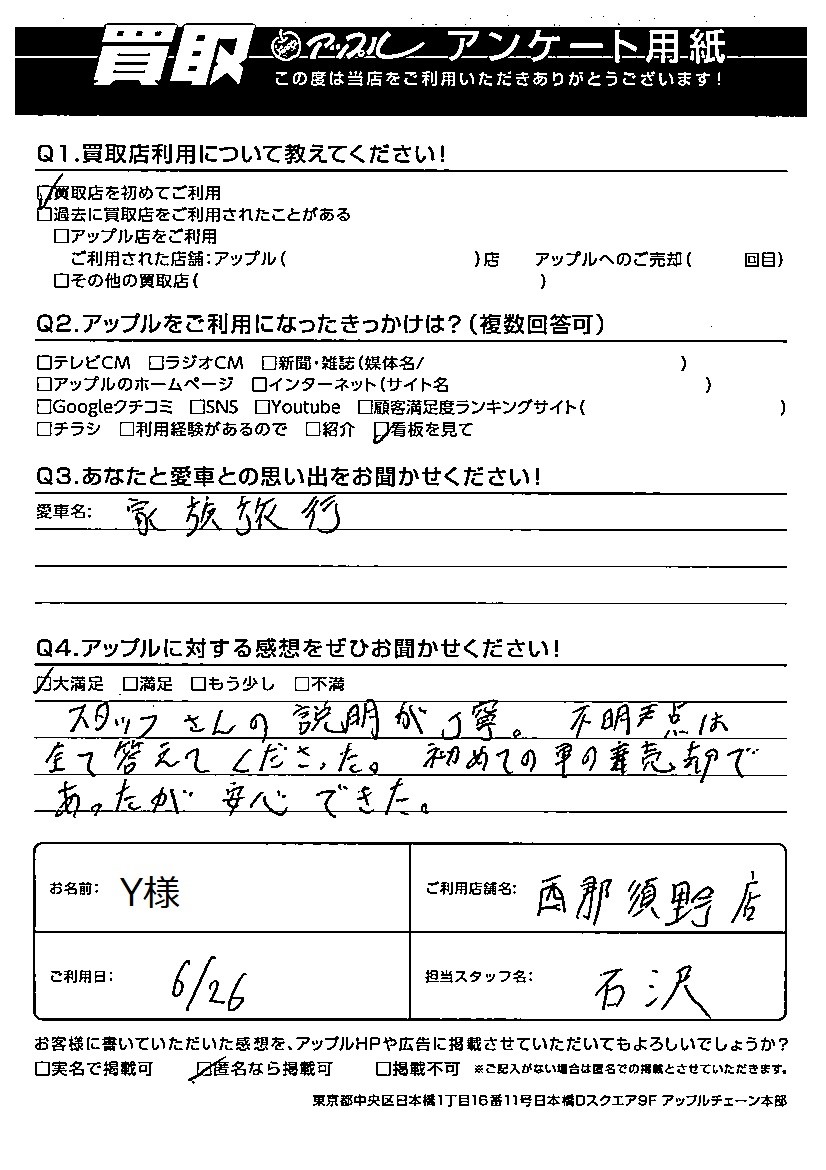 買取 アップル アンケート用紙
この度は当店をご利用いただきありがとうございます!
Q1.買取店利用について教えてください!
☑買取店を初めてご利用
□過去に買取店をご利用されたことがある
□アップル店をご利用
ご利用された店舗:アップル( )店 アップルへのご売却( 回目)
□その他の買取店( )
Q2.アップルをご利用になったきっかけは?(複数回答可)
□テレビCM □ラジオCM □新聞・雑誌(媒体名/ )
□アップルのホームページ □インターネット(サイト名 )
□Googleクチコミ □SNS □Youtube □顧客満足度ランキングサイト( )
□チラシ □利用経験があるので □紹介 ☑看板を見て
Q3.あなたと愛車との思い出をお聞かせください!
愛車名: 家族旅行
Q4.アップルに対する感想をぜひお聞かせください!
☑大満足 □満足 □もう少し □不満
スタッフさんの説明が丁寧。不明点は
全て答えてくださった。初めての車の売却で
あったが安心できた。
お名前: Y様 ご利用店舗名: 西那須野店
ご利用日: 6/26 担当スタッフ名: 石沢
お客様に書いていただいた感想を、アップルHPや広告に掲載させていただいてもよろしいでしょうか?
□実名で掲載可 ☑匿名なら掲載可 □掲載不可 ※ご記入がない場合は匿名での掲載とさせていただきます。
東京都中央区日本橋1丁目16番11号日本橋Dスクエア9F アップルチェーン本部